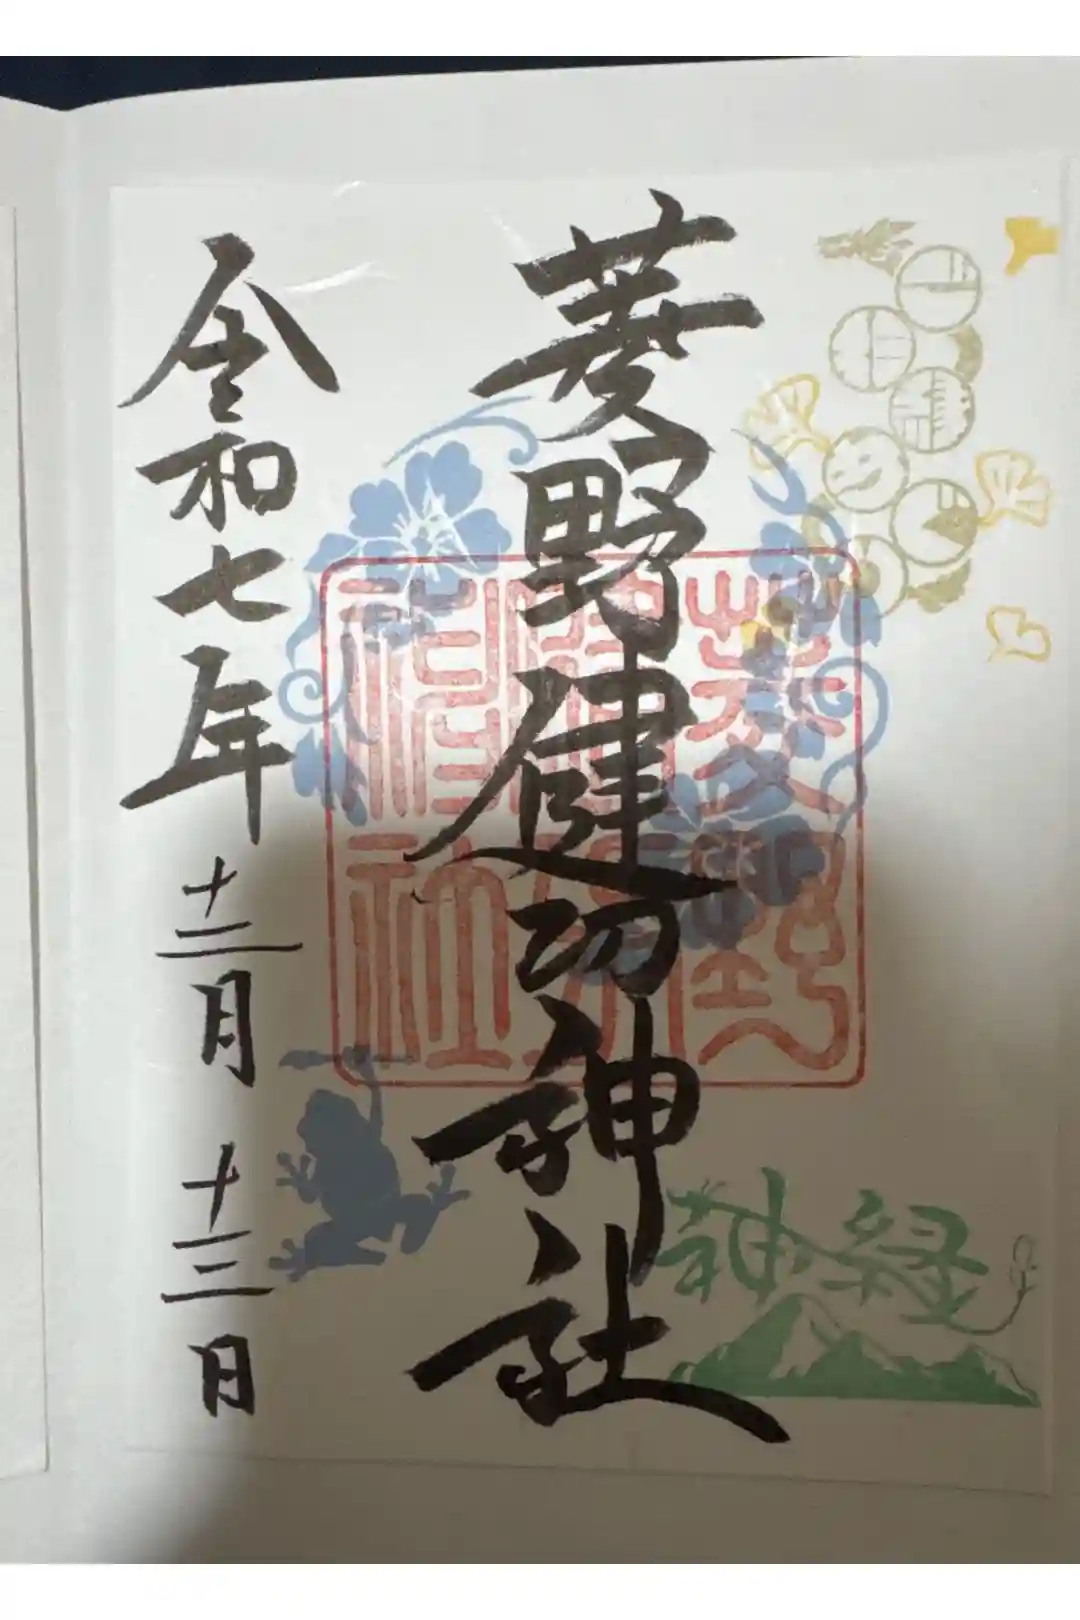 菱野健功神社
令和七年
十二月
十三日
菱野健功神社
神経